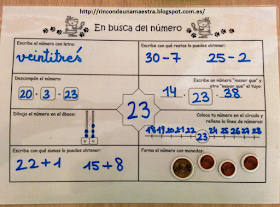 http://rincondeunamaestra.blogspot.com.es/
En busca del número
Escribe el número con letra:
veintitrés
Escribe con qué restas lo puedes obtener:
30-7 25-2
Descompón el número:
20 + 3 = 23
Escribe un número "menor que" y
otro "mayor que" el tuyo:
14 23 38
23
Dibuja el número en el ábaco:
Coloca tu número en el círculo y
rellena la línea de números:
18 19 20 21 22 23 24 25 26 27 28
Escribe con qué sumas lo puedes obtener:
22+1 15+8
Forma el número con monedas: